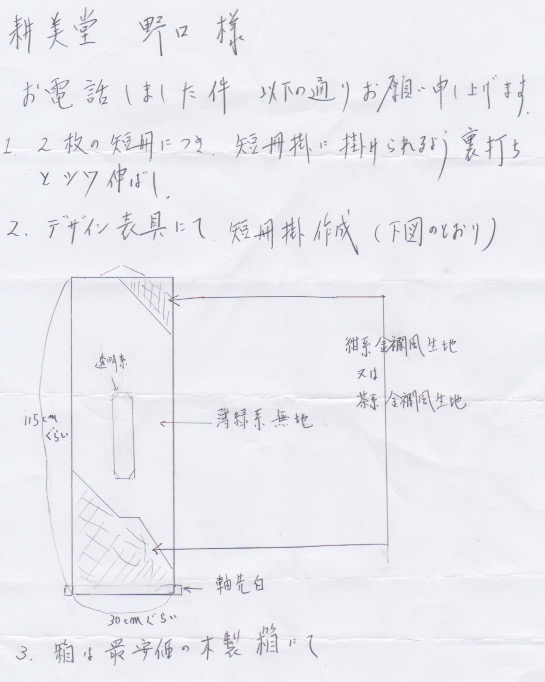 耕美堂 野口様
お電話しました件 以下の通りお願い申し上げます。
1. 2枚の短冊につき、短冊掛に掛けられるよう裏打ち
とシワ伸ばし、
2. デザイン表具にて 短冊掛作成 (下図のとおり)
紺系金襴風生地
又は
茶系金襴風生地
透明系
115cmぐらい
薄緑系無地
軸先白
30cmぐらい
3. 箱は最安価の木製箱にて